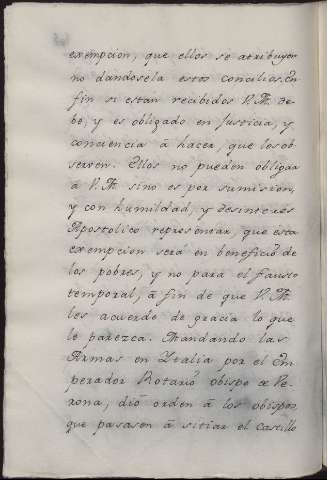 exempcion, que ellos se atribuyen
no dandosela estos concilios. En
fin si están recibidos V. M. de-
be, y es obligado en Justicia, y
conciencia â hacer, que los ob-
serven. Ellos no pueden obligar
â V. M. sino es por sumision,
y con humildad, y desinterés
Apostolico representar, que esta
exempcion será en beneficio de
los pobres, y no para el fausto
temporal, â fin de que V. M.
les acuerde de gracia lo que
le parezca. Mandando las
Armas en Ytalia por el Em
perador Rotario obispo de Ve-
rona, dió orden â los obispos,
que pasasen â sitiar el Castillo